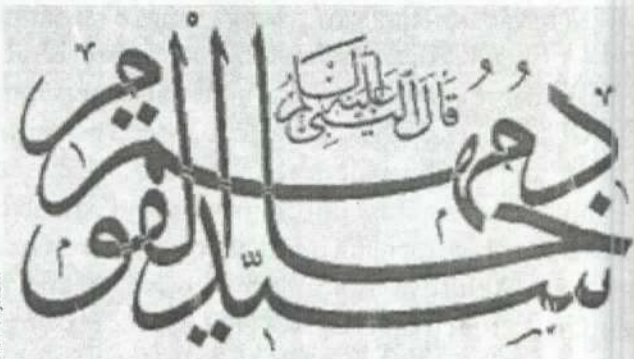 قَالَ النَّبِيُّ عَلَيْهِ السَّلَامُ
سَيِّدُ الْقَوْمِ خَادِمُهُمْ